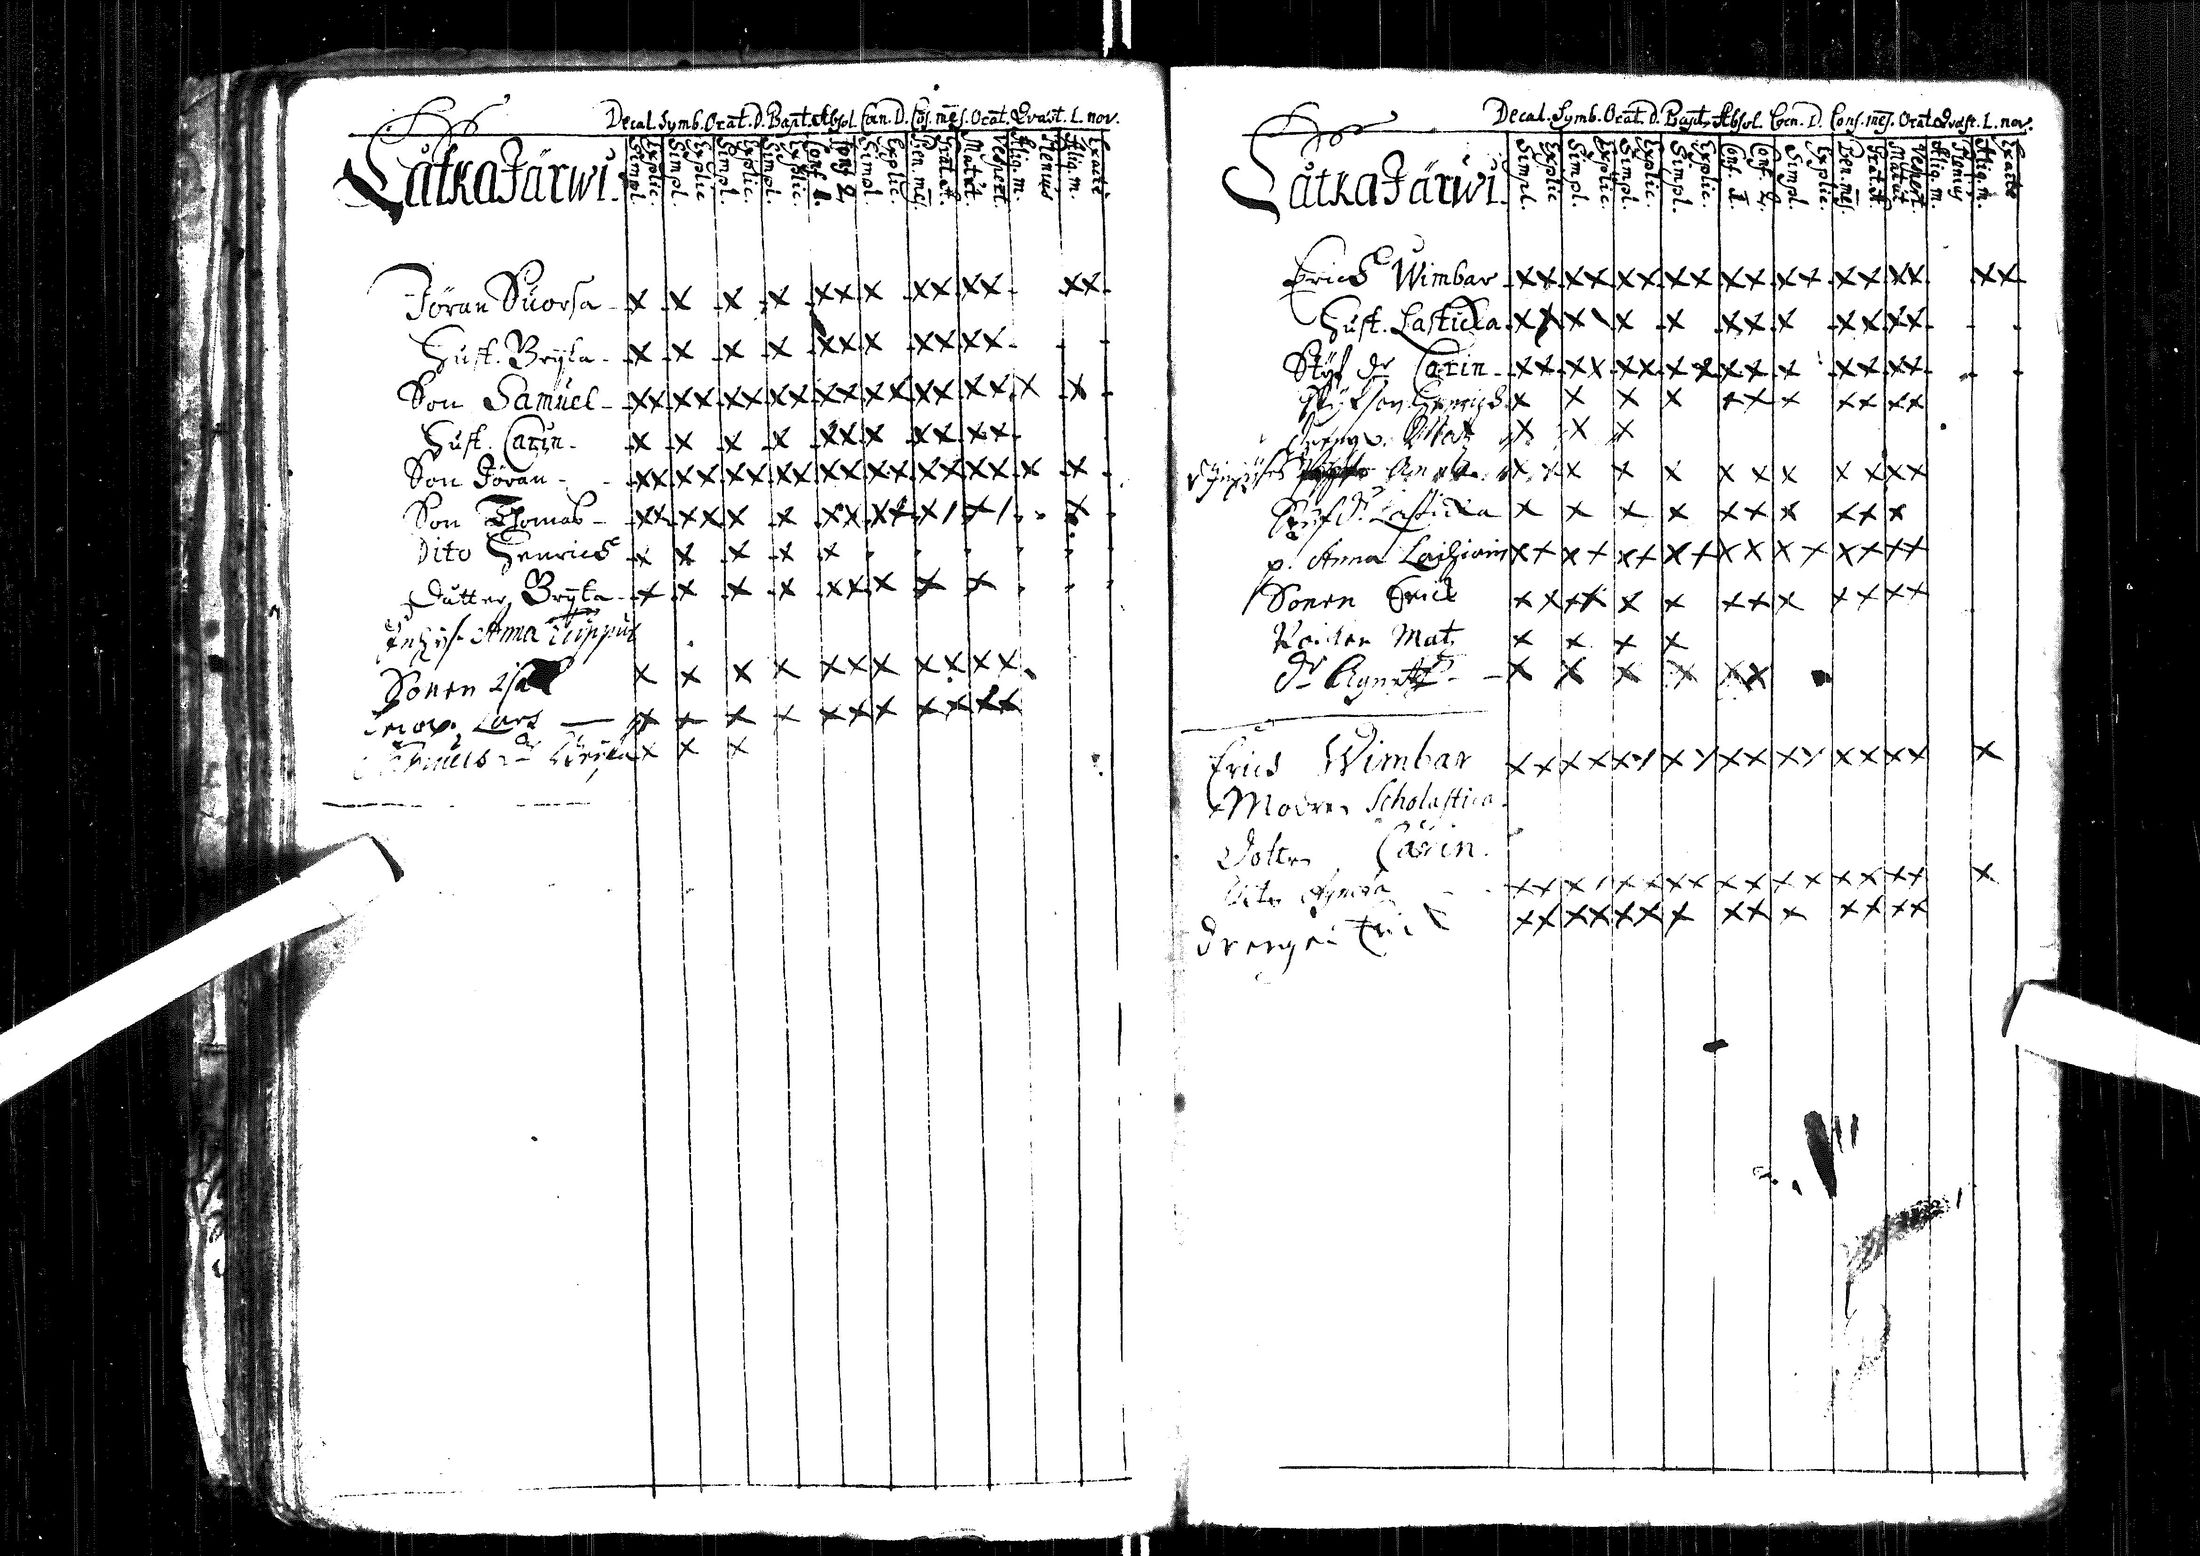 Decal. Symb. Orat. D. Bapt. Absol. Cœn. D. Cōs. mēs. Orat. Qvæst. L. nov.
Simpl. Explic. Simpl. Explic. Simpl. Explic. Simpl. Explic. Conf. 1. Conf. 2. Simpl. Explic. Ben. mēs. Grat. act. Matut. Vespert. Aliq. m. Plenius Aliq. m. Exacte
LåtkaJärwi.
Jöran Suorsa x x x x xxx xx xx xx
Hust. Brijta x x x x xxx xx xx
Son Samuel xx xx xx xx xx xx xx xx x x
Hust. Carin x x x x xxx xx xx
Son Jöran xx xx xx xx xx xx xx xx x x
Son Thomas xx xx x x xx xx x/ x/ x
Dito Henrich x x x x x
Dutter Brijta x x x x xxx x x
Anna
Sonen x x x x xxx xx xx
Lars x x x x xxx xx xx
Brijta x x x
Decal. Symb. Orat. D. Bapt. Absol. Cœn. D. Cons. mēs. Orat. Qvæst. L. nov.
Simpl. Explic. Simpl. Explic. Simpl. Explic. Simpl. Explic. Conf. 1. Conf. 2. Simpl. Explic. Ben. mēs. Grat. act. Matut. Vespert. Aliq. m. Plenius Aliq. m. Exacte
LåtkaJärwi.
Erich Wimbar xx xx xx xx xx xx xx xx xx
Hust. Lasticka x x x x xxx xx xx
Styf dr Carin xx xx xx xx xx x xx xx
Styfson Henrich x x x x xx x xx xx
Matz x x x
x x x x x x x x x x x
Lasticka x x x x xx x xx x
p. Anna xx xx xx xx xx xx xx xx
Sonen Erich xx xx x x xxx xx xx
Matz x x x x
dr Agneta x x x x xx
Erich Wimbar xx xx xx xx xx xx xx xx x
Modren Scholastica
Dottren Carin.
Dito Agneta xx x/ xx xx xx xx xx xx x
Drengen Erich xx xx xx x xx x xx xx